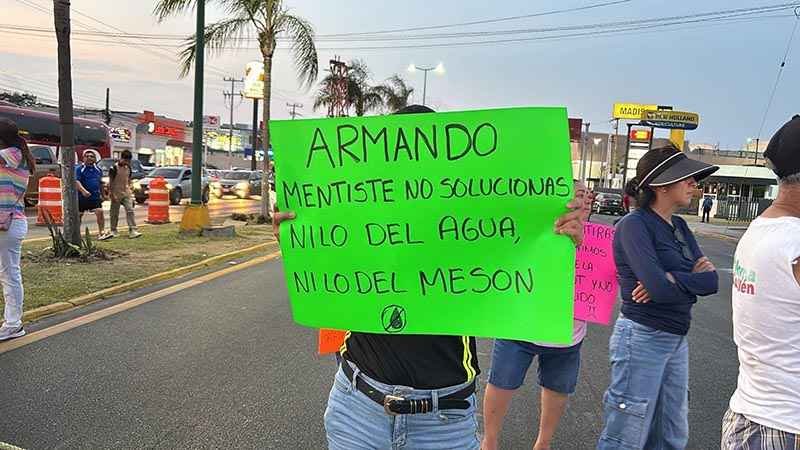 ARMANDO
MENTISTE NO SOLUCIONAS
NI LO DEL AGUA,
NI LO DEL MESON
MADIS
NEW HOLLAND
AGRICULTURE
Y NO
!!